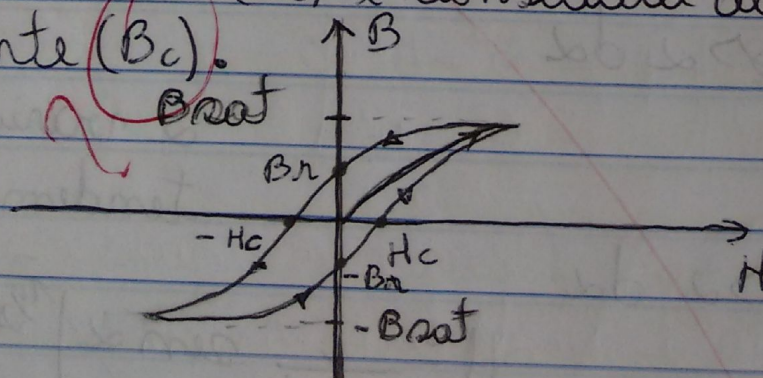 B
nte (Bc).
Bsat
Br
-Hc
Hc
H
-Br
-Bsat